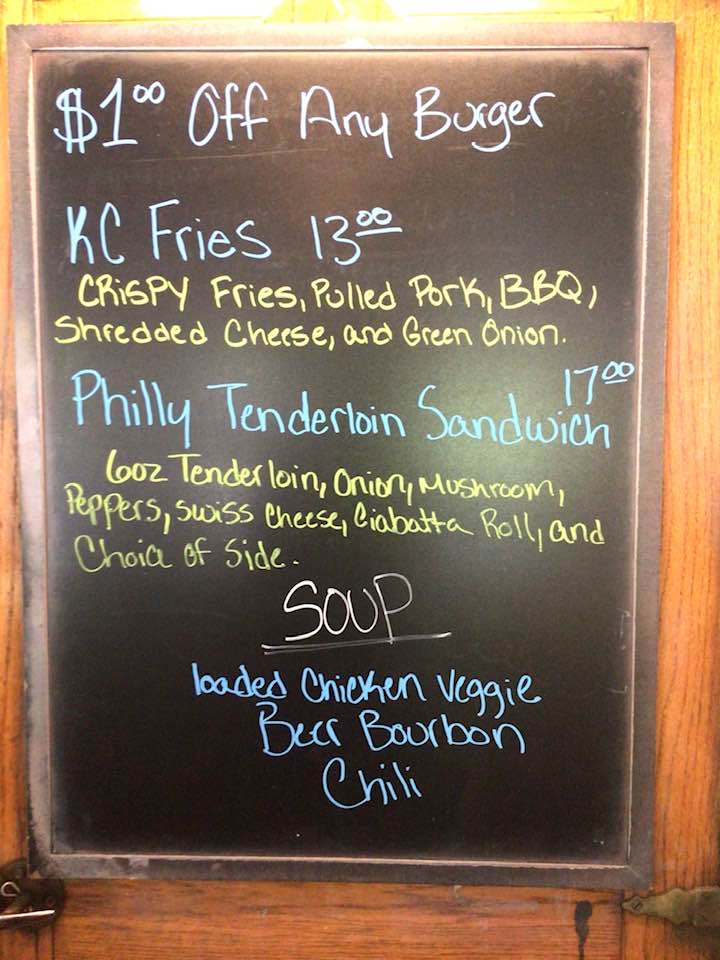 $1.00 Off Any Burger
KC Fries 13.00
CRiSPY Fries, Pulled Pork, BBQ,
Shredded Cheese, and Green Onion.
17.00
Philly Tenderloin Sandwich
6oz Tenderloin, Onion, Mushroom,
Peppers, Swiss Cheese, Ciabatta Roll, and
Choice of Side.
SOUP
loaded Chicken Veggie
Beer Bourbon
Chili